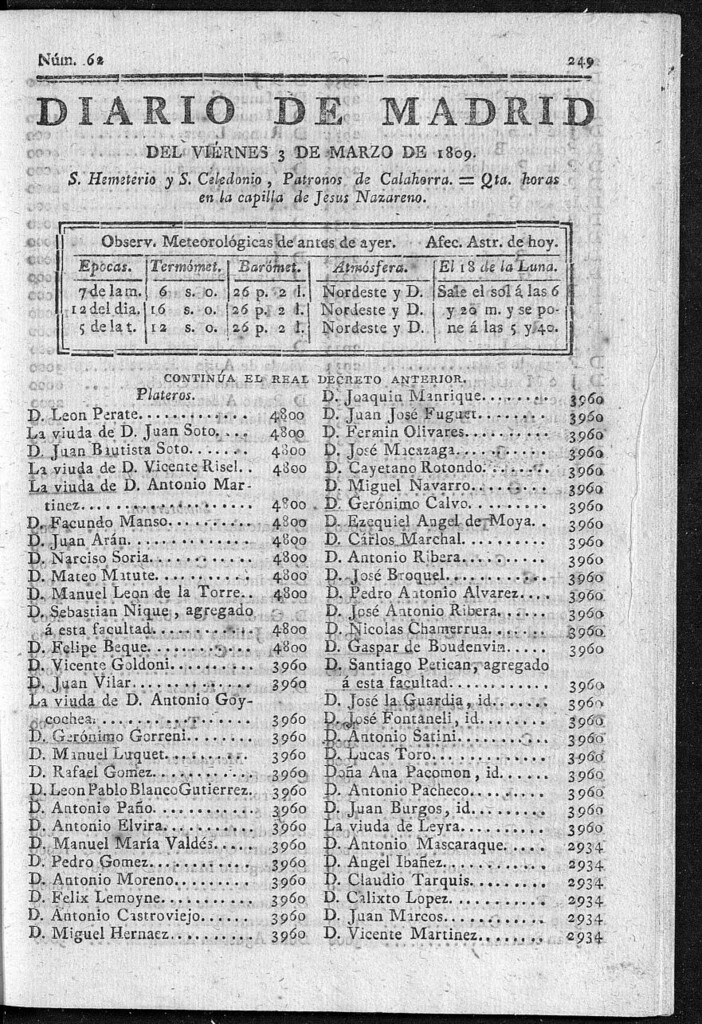 Núm. 62 249
DIARIO DE MADRID
DEL VIÉRNES 3 DE MARZO DE 1809.
S. Hemeterio y S. Celedonio, Patronos de Calahorra. = Qta. horas
en la capilla de Jesus Nazareno.
Observ. Meteorológicas de antes de ayer. Afec. Astr. de hoy.
Epocas. Termómet. Barómet. Atmósfera. El 18 de la Luna.
7 de la m. 6 s. o. 26 p. 2 l. Nordeste y D. Sale el sol á las 6
12 del dia. 16 s. o. 26 p. 2 l. Nordeste y D. y 20 m. y se po-
5 de la t. 12 s. o. 26 p. 2 l. Nordeste y D. ne á las 5 y 40.
CONTINÚA EL REAL DECRETO ANTERIOR.
Plateros.
D. Leon Perate............ 4800
La viuda de D. Juan Soto.... 4800
D. Juan Bautista Soto....... 4800
La viuda de D. Vicente Risel.. 4800
La viuda de D. Antonio Mar-
tinez.................... 4800
D. Facundo Manso......... 4800
D. Juan Arán............. 4800
D. Narciso Soria........... 4800
D. Mateo Matute.......... 4800
D. Manuel Leon de la Torre.. 4800
D. Sebastian Nique, agregado
á esta facultad........... 4800
D. Felipe Beque........... 4800
D. Vicente Goldoni......... 3960
D. Juan Vilar............. 3960
La viuda de D. Antonio Goy-
cochea.................. 3960
D. Gerónimo Gorreni....... 3960
D. Manuel Luquet......... 3960
D. Rafael Gomez.......... 3960
D. Leon Pablo Blanco Gutierrez. 3960
D. Antonio Paño.......... 3960
D. Antonio Elvira.......... 3960
D. Manuel María Valdés..... 3960
D. Pedro Gomez........... 3960
D. Antonio Moreno........ 3960
D. Felix Lemoyne......... 3960
D. Antonio Castroviejo...... 3960
D. Miguel Hernaez......... 3960
D. Joaquin Manrique....... 3960
D. Juan José Fuguet........ 3960
D. Fermin Olivares......... 3960
D. José Macazaga.......... 3960
D. Cayetano Rotondo....... 3960
D. Miguel Navarro......... 3960
D. Gerónimo Calvo........ 3960
D. Ezequiel Angel de Moya.. 3960
D. Cárlos Marchal......... 3960
D. Antonio Ribera......... 3960
D. José Broquel........... 3960
D. Pedro Antonio Alvarez.... 3960
D. José Antonio Ribera...... 3960
D. Nicolas Chamerrua....... 3960
D. Gaspar de Boudenvin..... 3960
D. Santiago Petican, agregado
á esta facultad........... 3960
D. José la Guardia, id....... 3960
D. José Fontaneli, id........ 3960
D. Antonio Satini.......... 3960
D. Lucas Toro............ 3960
Doña Ana Pacomon, id..... 3960
D. Antonio Pacheco........ 3960
D. Juan Burgos, id......... 3960
La viuda de Leyra.......... 3960
D. Antonio Mascaraque..... 2934
D. Angel Ibañez........... 2934
D. Claudio Tarquis......... 2934
D. Calixto Lopez.......... 2934
D. Juan Marcos........... 2934
D. Vicente Martinez........ 2934